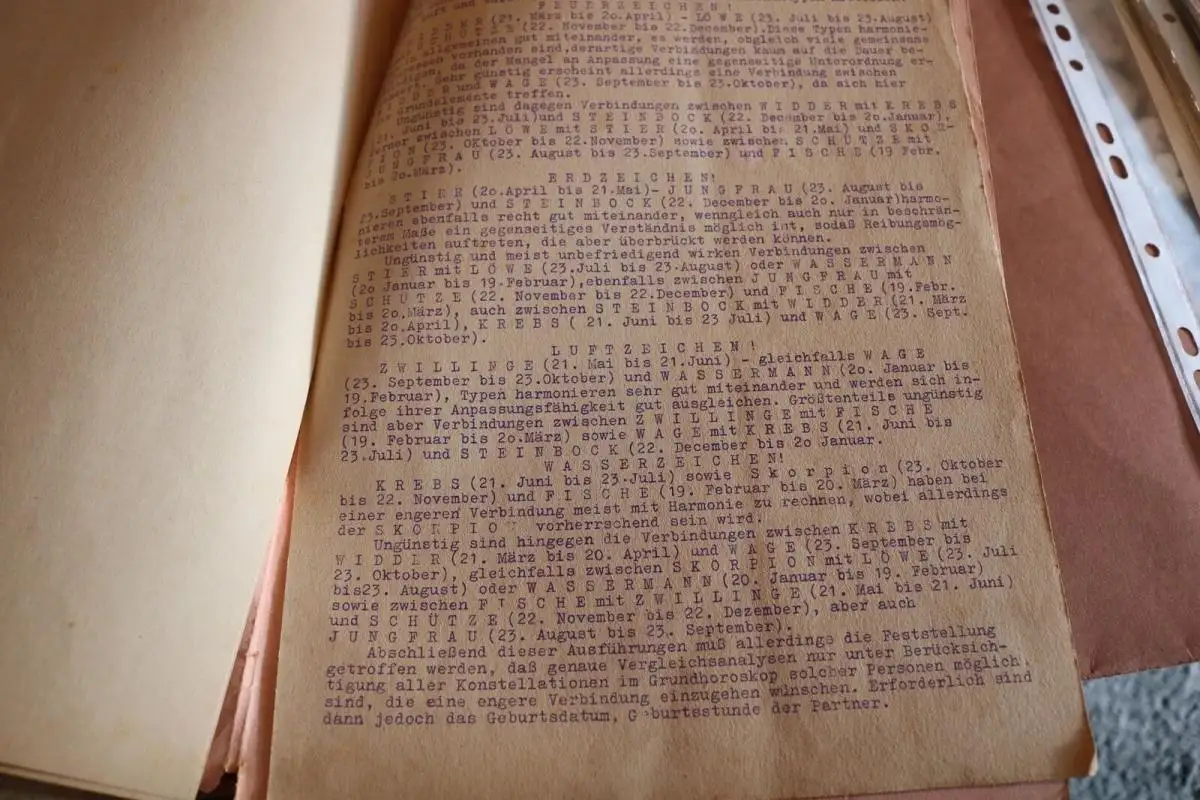 FEUERZEICHEN!
(21. März bis 2o.April) - LÖWE (23. Juli bis 23.August)
(22. November bis 22.December).Diese Typen harmonie-
allgemeinen gut miteinander, es werden, obgleich viele gemeinsame
vorhanden sind,derartige Verbindungen kaum auf die Dauer be-
da der Mangel an Anpassung eine gegenseitige Unterordnung er-
Sehr günstig erscheint allerdings eine Verbindung zwischen
und WAGE (23. September bis 23.Oktober), da sich hier
Grundelemente treffen.
Ungünstig sind dagegen Verbindungen zwischen WIDDER mit KREBS
Juni bis 23.Juli)und STEINBOCK (22. December bis 2o.Januar),
ferner zwischen LÖWE mit STIER (2o. April bis 21.Mai) und SKOR-
PION (23. OKtober bis 22.November) sowie zwischen SCHÜTZE mit
JUNGFRAU (23. August bis 23.September) und FISCHE (19 Febr.
bis 2o.März).
ERDZEICHEN!
STIER (2o.April bis 21.Mai)- JUNGFRAU (23. August bis
23.September) und STEINBOCK (22. December bis 2o. Januar)harmo-
nieren ebenfalls recht gut miteinander, wenngleich auch nur in beschrän-
terem Maße ein gegenseitiges Verständnis möglich int, sodaß Reibungsmög-
lichkeiten auftreten, die aber überbrückt werden können.
Ungünstig und meist unbefriedigend wirken Verbindungen zwischen
STIER mit LÖWE (23.Juli bis 23.August) oder WASSERMANN
(2o Januar bis 19.Februar),ebenfalls zwischen JUNGFRAU mit
SCHÜTZE (22. November bis 22.December) und FISCHE (19.Febr.
bis 2o.März), auch zwischen STEINBOCK mit WIDDER (21. März
bis 2o.April), KREBS ( 21. Juni bis 23 Juli) und WAGE (23. Sept.
bis 23.Oktober).
LUFTZEICHEN!
ZWILLINGE (21. Mai bis 21.Juni) - gleichfalls WAGE
(23. September bis 23.Oktober) und WASSERMANN (2o. Januar bis
19.Februar), Typen harmonieren sehr gut miteinander und werden sich in-
folge ihrer Anpassungsfähigkeit gut ausgleichen. Größtenteils ungünstig
sind aber Verbindungen zwischen ZWILLINGE mit FISCHE
(19. Februar bis 2o.März) sowie WAGE mit KREBS (21. Juni bis
23.Juli) und STEINBOCK (22. December bis 2o Januar.
WASSERZEICHEN!
KREBS (21. Juni bis 23.Juli) sowie Skorpion (23. Oktober
bis 22. November) und FISCHE (19. Februar bis 20. März) haben bei
einer engeren Verbindung meist mit Harmonie zu rechnen, wobei allerdings
der SKORPION vorherrschend sein wird.
Ungünstig sind hingegen die Verbindungen zwischen KREBS mit
WIDDER (21. März bis 20. April) und WAGE (23. September bis
23. Oktober), gleichfalls zwischen SKORPION mit LÖWE (23. Juli
bis23. August) oder WASSERMANN (20. Januar bis 19. Februar)
sowie zwischen FISCHE mit ZWILLINGE (21. Mai bis 21. Juni)
und SCHÜTZE (22. November bis 22. Dezember), aber auch
JUNGFRAU (23. August bis 23. September).
Abschließend dieser Ausführungen muß allerdings die Feststellung
getroffen werden, daß genaue Vergleichsanalysen nur unter Berücksich-
tigung aller Konstellationen im Grundhoroskop solcher Personen möglich
sind, die eine engere Verbindung einzugehen wünschen. Erforderlich sind
dann jedoch das Geburtsdatum, Geburtsstunde der Partner.